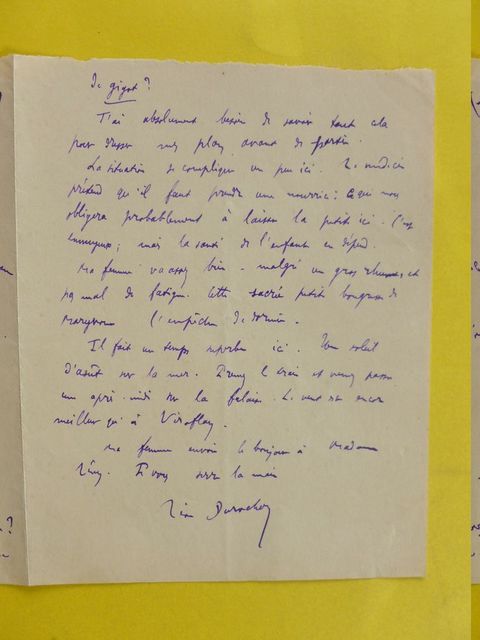 de gigot ?
J'ai absolument besoin de savoir tout cela
pour dresser mes plans avant de partir.
La situation se complique un peu ici. Le médecin
prétend qu'il faut prendre une nourrice : ce qui nous
obligera probablement à laisser la petite ici. C'est
ennuyeux ; mais la santé de l'enfant en dépend.
Ma femme va assez bien - malgré un gros rhume, et
pas mal de fatigue. Cette sacrée petite bougresse de
l'empêche de dormir.
Il fait un temps superbe ici. Un soleil
d'août sur la mer. Prenez le train et venez passer
un après-midi sur la falaise. Le vent est encore
meilleur qu'à Viroflay.
Ma femme envoie le bonjour à Madame
Je vous serre la main